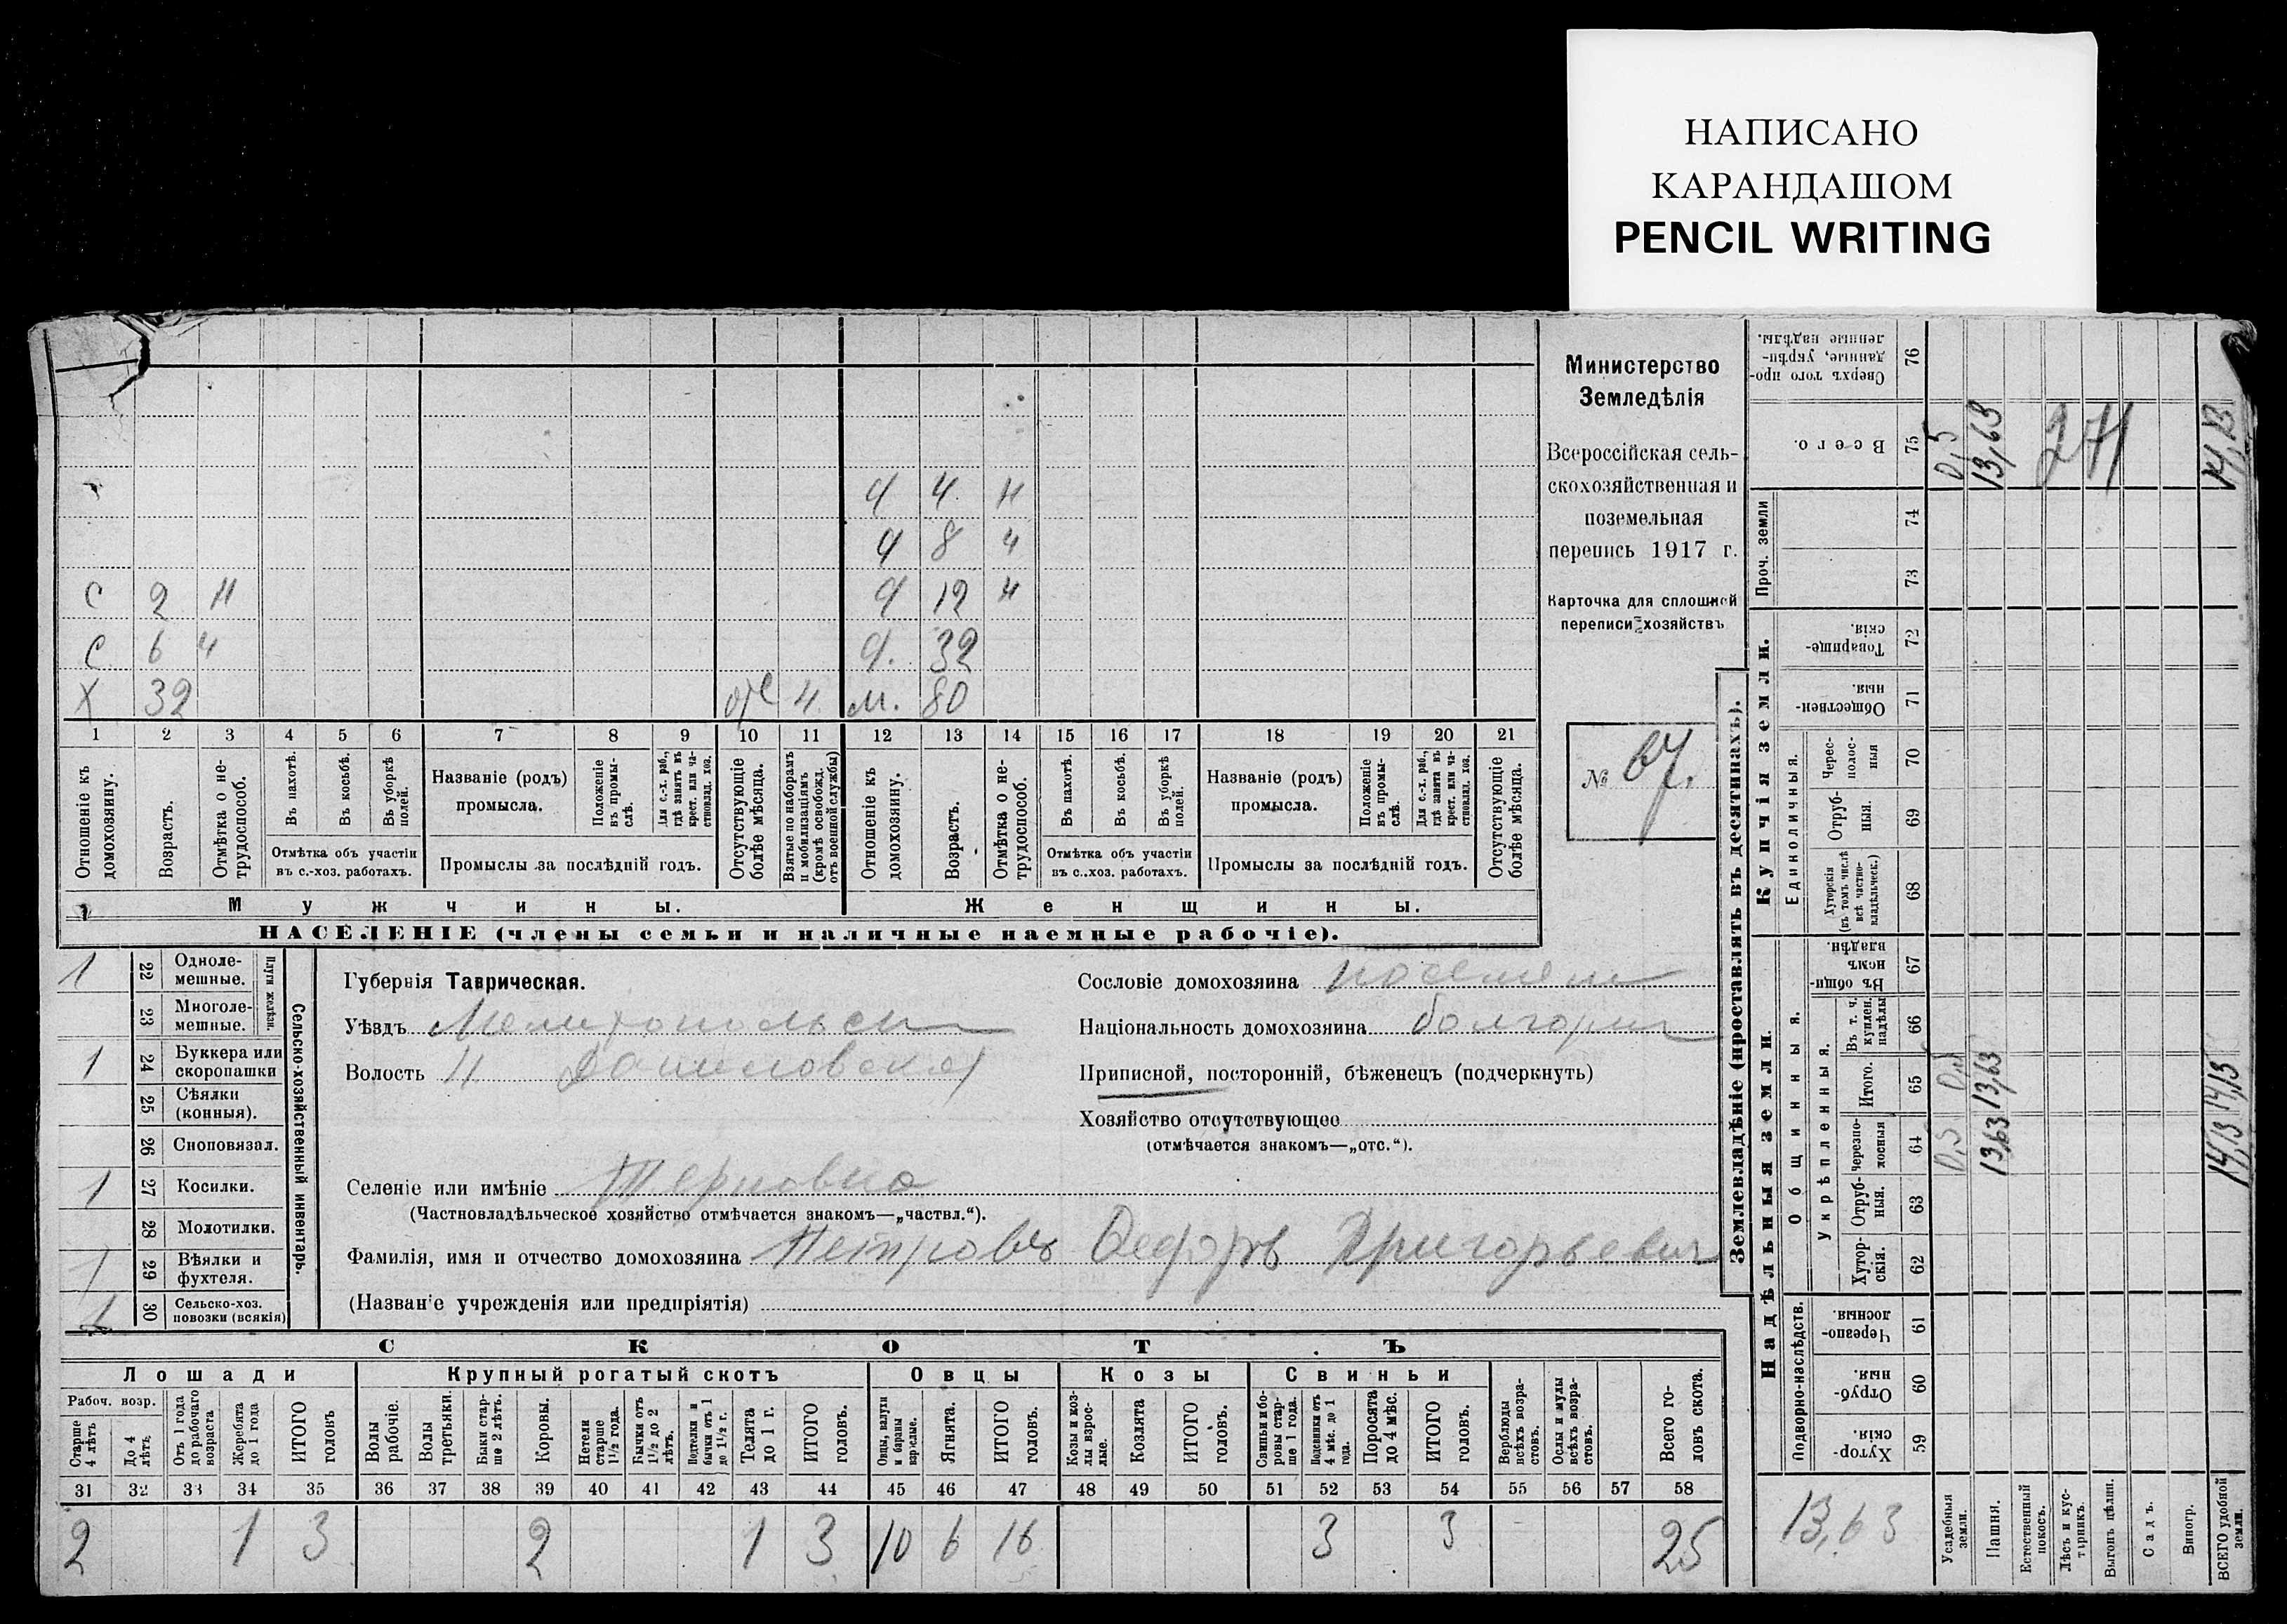 НАПИСАНО
КАРАНДАШОМ
PENCIL WRITING
Министерство
Земледѣлія
Всероссійская сель-
скохозяйственная и
поземельная
перепись 1917 г.
Карточка для сплошной
переписи хозяйствъ
№ 67.
ч 4 н
ч 8 н
с 2 н ч 12 н
с 6 н ч. 32
х 32 отс ч. м. 80
1 2 3 4 5 6 7 8 9 10 11 12 13 14 15 16 17 18 19 20 21
Отношеніе къ домохозяину.
Возрастъ.
Отмѣтка о не-трудоспособ.
Въ пахотѣ.
Въ косьбѣ.
Въ уборкѣ полей.
Отмѣтка объ участіи
въ с.-хоз. работахъ.
Названіе (родъ)
промысла.
Положеніе въ промы-слѣ.
Для с.-х. раб., гдѣ занятъ въ крест. или ча-стновлад. хоз.
Промыслы за послѣдній годъ.
Отсутствующіе болѣе мѣсяца.
Взятые по наборамъ и мобилизаціямъ (кромѣ освобожд. отъ военной службы)
Отношеніе къ домохозяину.
Возрастъ.
Отмѣтка о не-трудоспособ.
Въ пахотѣ.
Въ косьбѣ.
Въ уборкѣ полей.
Отмѣтка объ участіи
въ с..хоз. работахъ.
Названіе (родъ)
промысла.
Положеніе въ промы-слѣ.
Для с.-х. раб., гдѣ занята въ крест. или ча-стновлад. хоз.
Промыслы за послѣдній годъ.
Отсутствующіе болѣе мѣсяца.
Мужчины. Женщины.
НАСЕЛЕНІЕ (члены семьи и наличные наемные рабочіе).
Сельско-хозяйственный инвентарь.
Плуги желѣзн.
1 22 Одноле-мешные.
23 Многоле-мешные.
1 24 Буккера или скоропашки
25 Сѣялки (конныя).
26 Сноповязал.
1 27 Косилки.
28 Молотилки.
1 29 Вѣялки и фухтеля.
1 30 Сельско-хоз. повозки (всякія)
Губернія Таврическая.
Уѣздъ Мелитопольск
Волость Н Даниловская
Сословіе домохозяина поселян
Національность домохозяина болгарин
Приписной, посторонній, бѣженецъ (подчеркнуть)
Хозяйство отсутствующее
(отмѣчается знакомъ—„отс.“).
Селеніе или имѣніе Терновка
(Частновладѣльческое хозяйство отмѣчается знакомъ—„частвл.“).
Фамилія, имя и отчество домохозяина Петровъ Федоръ Григорьевич
(Названіе учрежденія или предпріятія)
СКОТЪ
Лошади Крупный рогатый скотъ Овцы Козы Свиньи
Рабоч. возр.
Старше 4 лѣтъ
До 4 лѣтъ
Отъ 1 года до рабочаго возраста
Жеребята до 1 года
ИТОГО головъ
Волы рабочіе.
Волы третьяки.
Быки стар-ше 2 лѣтъ.
Коровы.
Нетели старше 1½ года.
Бычки отъ 1½ до 2 лѣтъ.
Подтелки и бычки отъ 1 до 1½ г.
Телята до 1 г.
ИТОГО головъ.
Овцы, валухи и бараны взрослые.
Ягнята.
ИТОГО головъ.
Козы и коз-лы взрос-лые.
Козлята
ИТОГО головъ.
Свиньи и бо-ровы стар-ше 1 года.
Подсвинки отъ 4 мѣс. до 1 года.
Поросята до 4 мѣс.
ИТОГО головъ.
Верблюды всѣхъ возра-стовъ.
Ослы и мулы всѣхъ возра-стовъ.
Всего го-ловъ скота.
31 32 33 34 35 36 37 38 39 40 41 42 43 44 45 46 47 48 49 50 51 52 53 54 55 56 57 58
2 1 3 2 1 3 10 6 16 3 3 25
Землевладѣніе (проставлять въ десятинахъ).
Надѣльныя земли.
Купчія земли.
Проч. земли
Подворно-наслѣдств.
Общинныя.
Укрѣпленныя.
Единоличныя.
Хутор-скія. 59
Отруб-ныя. 60
Черезпо-лосныя. 61
Хутор-скія. 62
Отруб-ныя. 63
Черезпо-лосныя 64
Итого. 65
Въ т. ч. куплен. надѣлы 66
Въ общин-номъ владѣн. 67
Хуторскія (въ томъ числѣ всѣ частно-владѣльческ.) 68
Отруб-ныя. 69
Черес-полос-ныя 70
Обществен-ныя. 71
Товарище-скія. 72
73
74
Всего. 75
Сверхъ того про-данные, укрѣп-ленные надѣлы. 76
13,63
Усадебныя земли. 0,5 0,5 0,5
Пашня. 13,63 13,63 13,63
Естественный покосъ.
Лѣсъ и кус-тарникъ.
Выгонъ цѣлин.
Садъ.
Виногр.
ВСЕГО удобной земли. 14,13 14,13 14,13
271